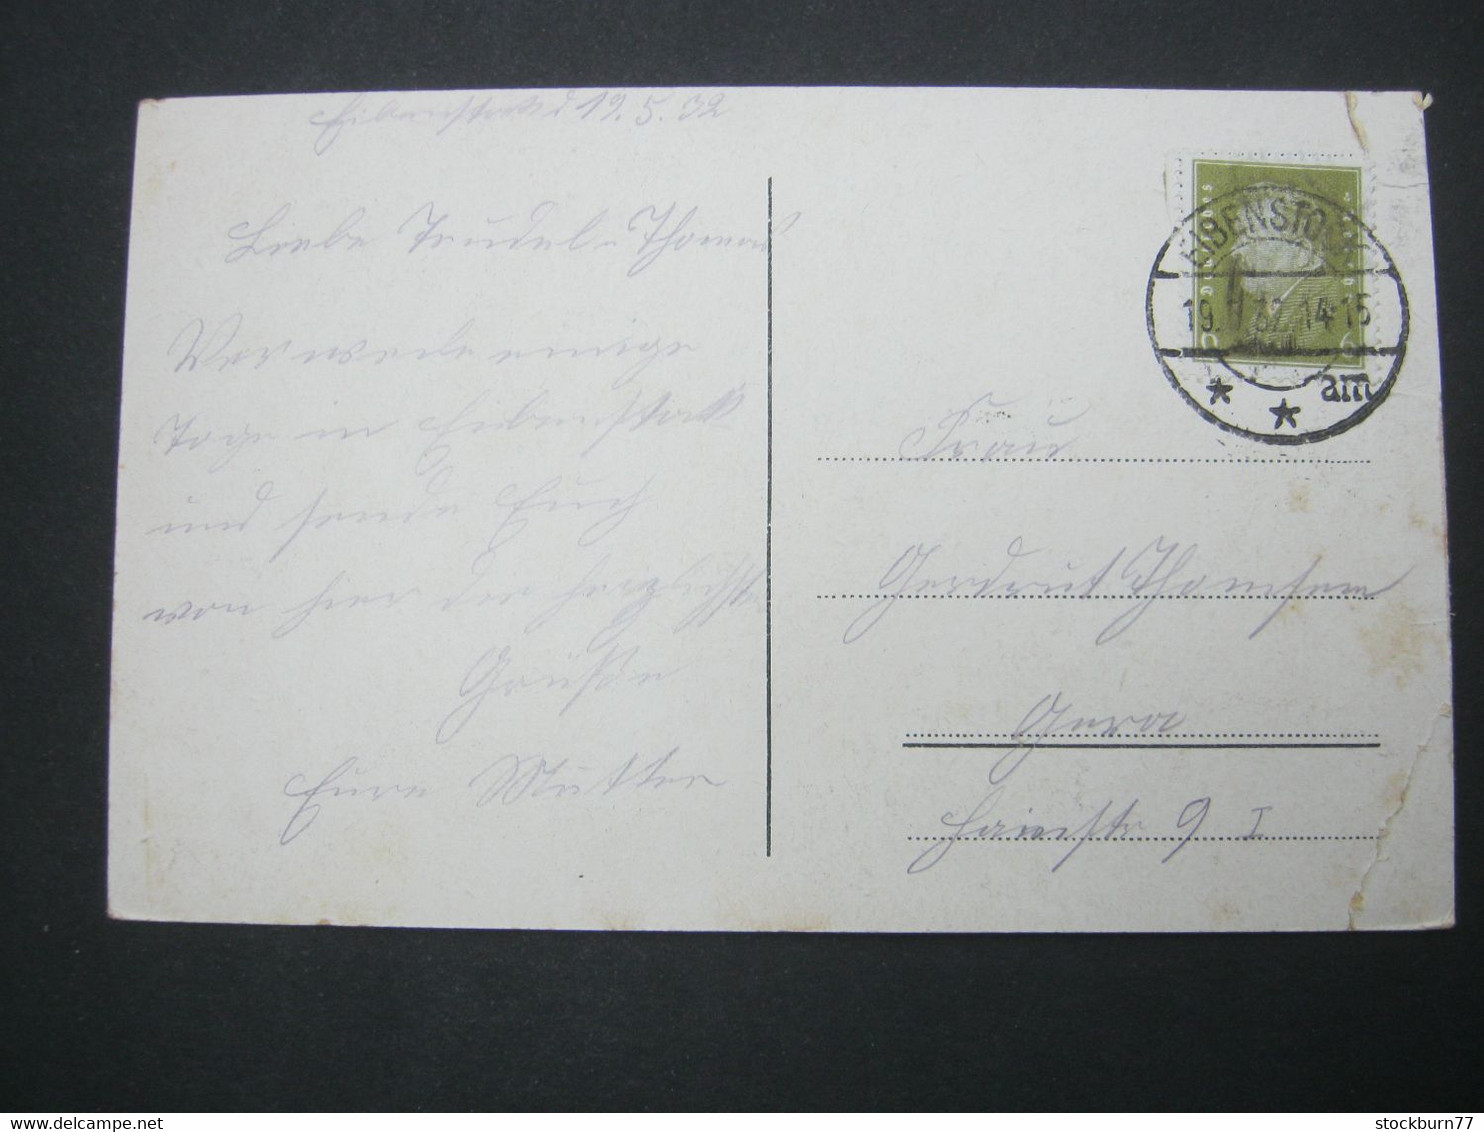 Eibenstock d 19.5.32
Liebe Trudel u Thomas
Verweile einige
Tage in Eibenstock
und sende Euch
von hier die herzlichste
Grüße
Eure Mutter
EIBENSTOCK
19. 32. 14-15
* * am
6
Frau
Gerdrut Thomsen
Gera
9 I
stockburn77